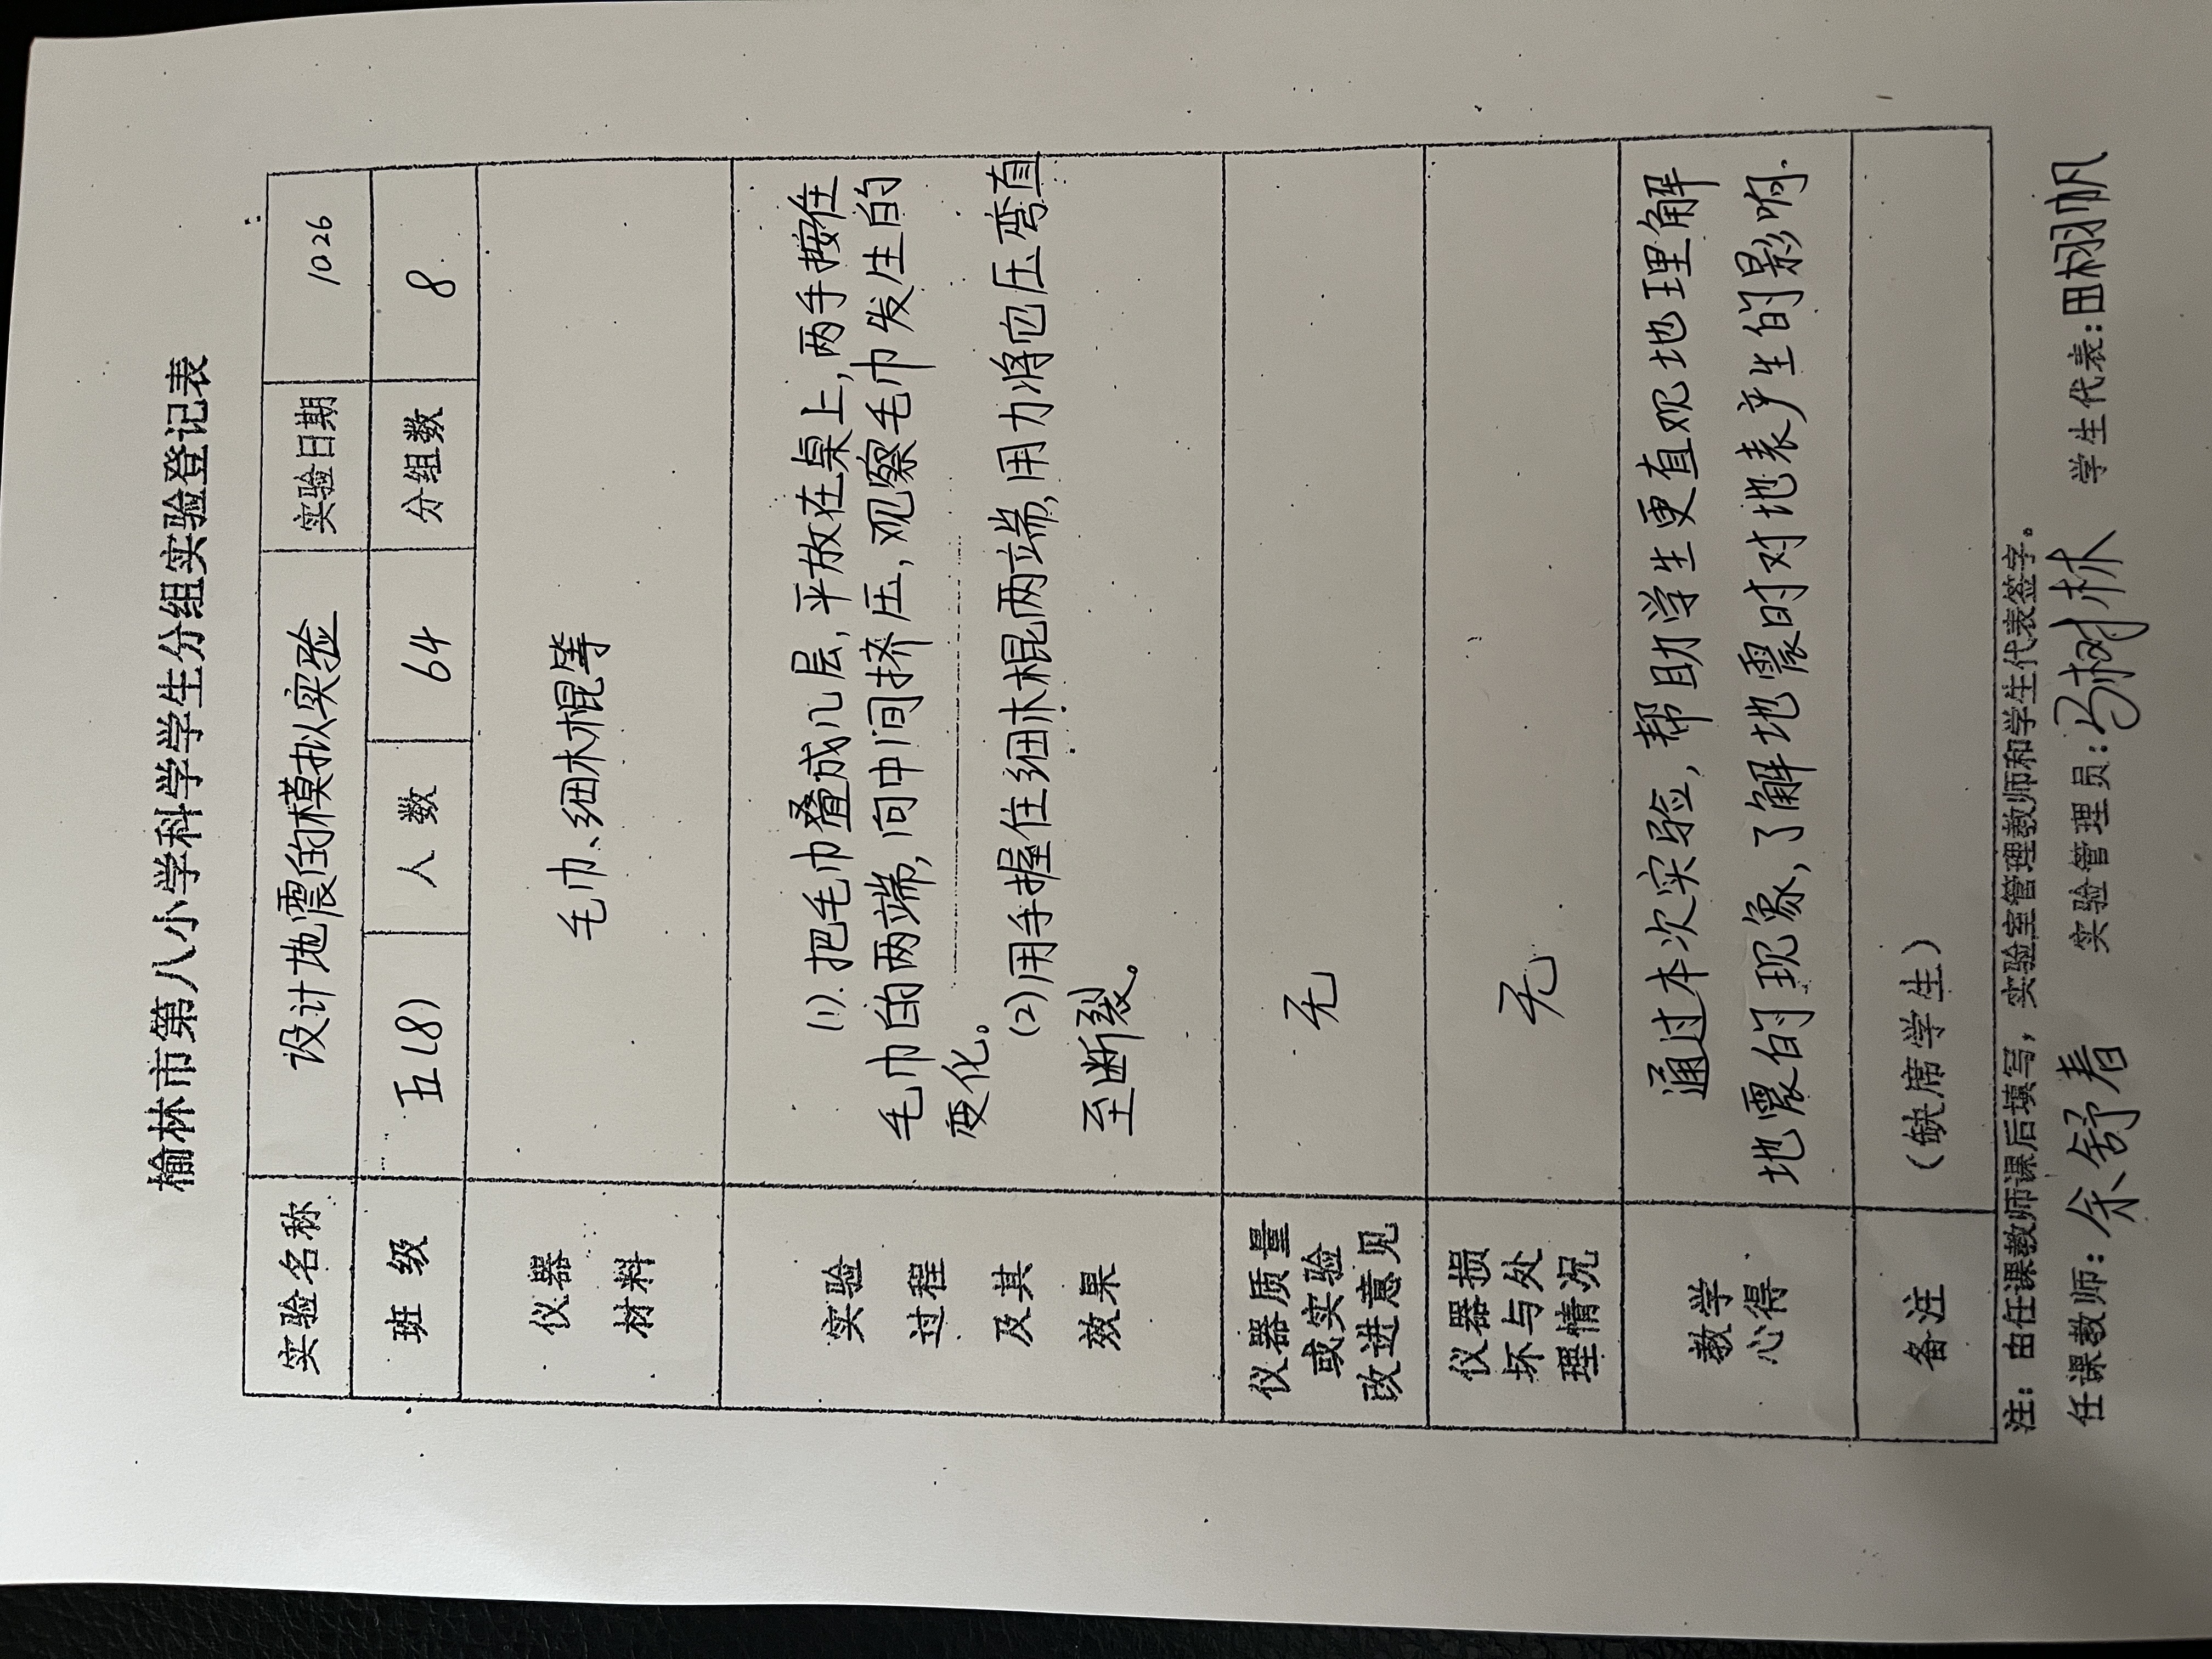 榆林市第八小学科学学生分组实验登记表
实验名称 设计地震的模拟实验 实验日期 10 26
班 级 五(8) 人 数 64 分组数 8
仪器
材料
毛巾、细木棍等
实验
过程
及其
效果
(1).把毛巾叠成几层,平放在桌上,两手按住
毛巾的两端,向中间挤压,观察毛巾发生的
变化。
(2)用手握住细木棍两端,用力将它压弯直
至断裂。
仪器质量
或实验
改进意见
无
仪器损
坏与处
理情况
无
教学
心得
通过本次实验,帮助学生更直观地理解
地震的现象,了解地震时对地表产生的影响.
备注 (缺席学生)
注:由任课教师课后填写,实验室管理教师和学生代表签字。
任课教师:余舒春 实验管理员:马树林 学生代表:田栩帆